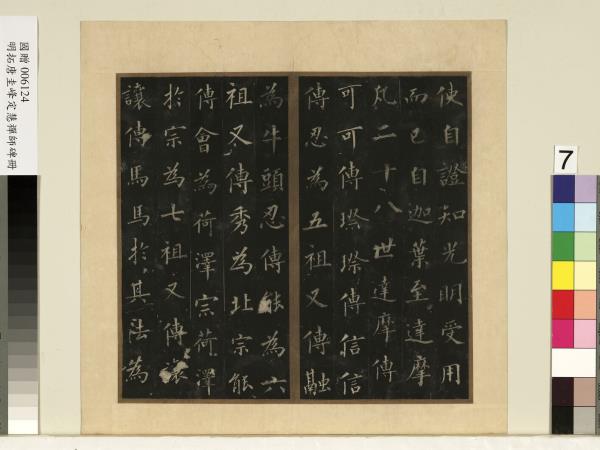 國贈 006124
明拓唐圭峰定慧禪師碑冊
7
使自證知光明受用
而已自迦葉至達摩
凢二十八世達摩傳
可可傳璨璨傳信信
傳忍為五祖又傳融
為牛頭忍傳能為六
祖又傳秀為北宗能
傳會為荷澤宗荷澤
於宗為七祖又傳讓
讓傳馬馬於其法為